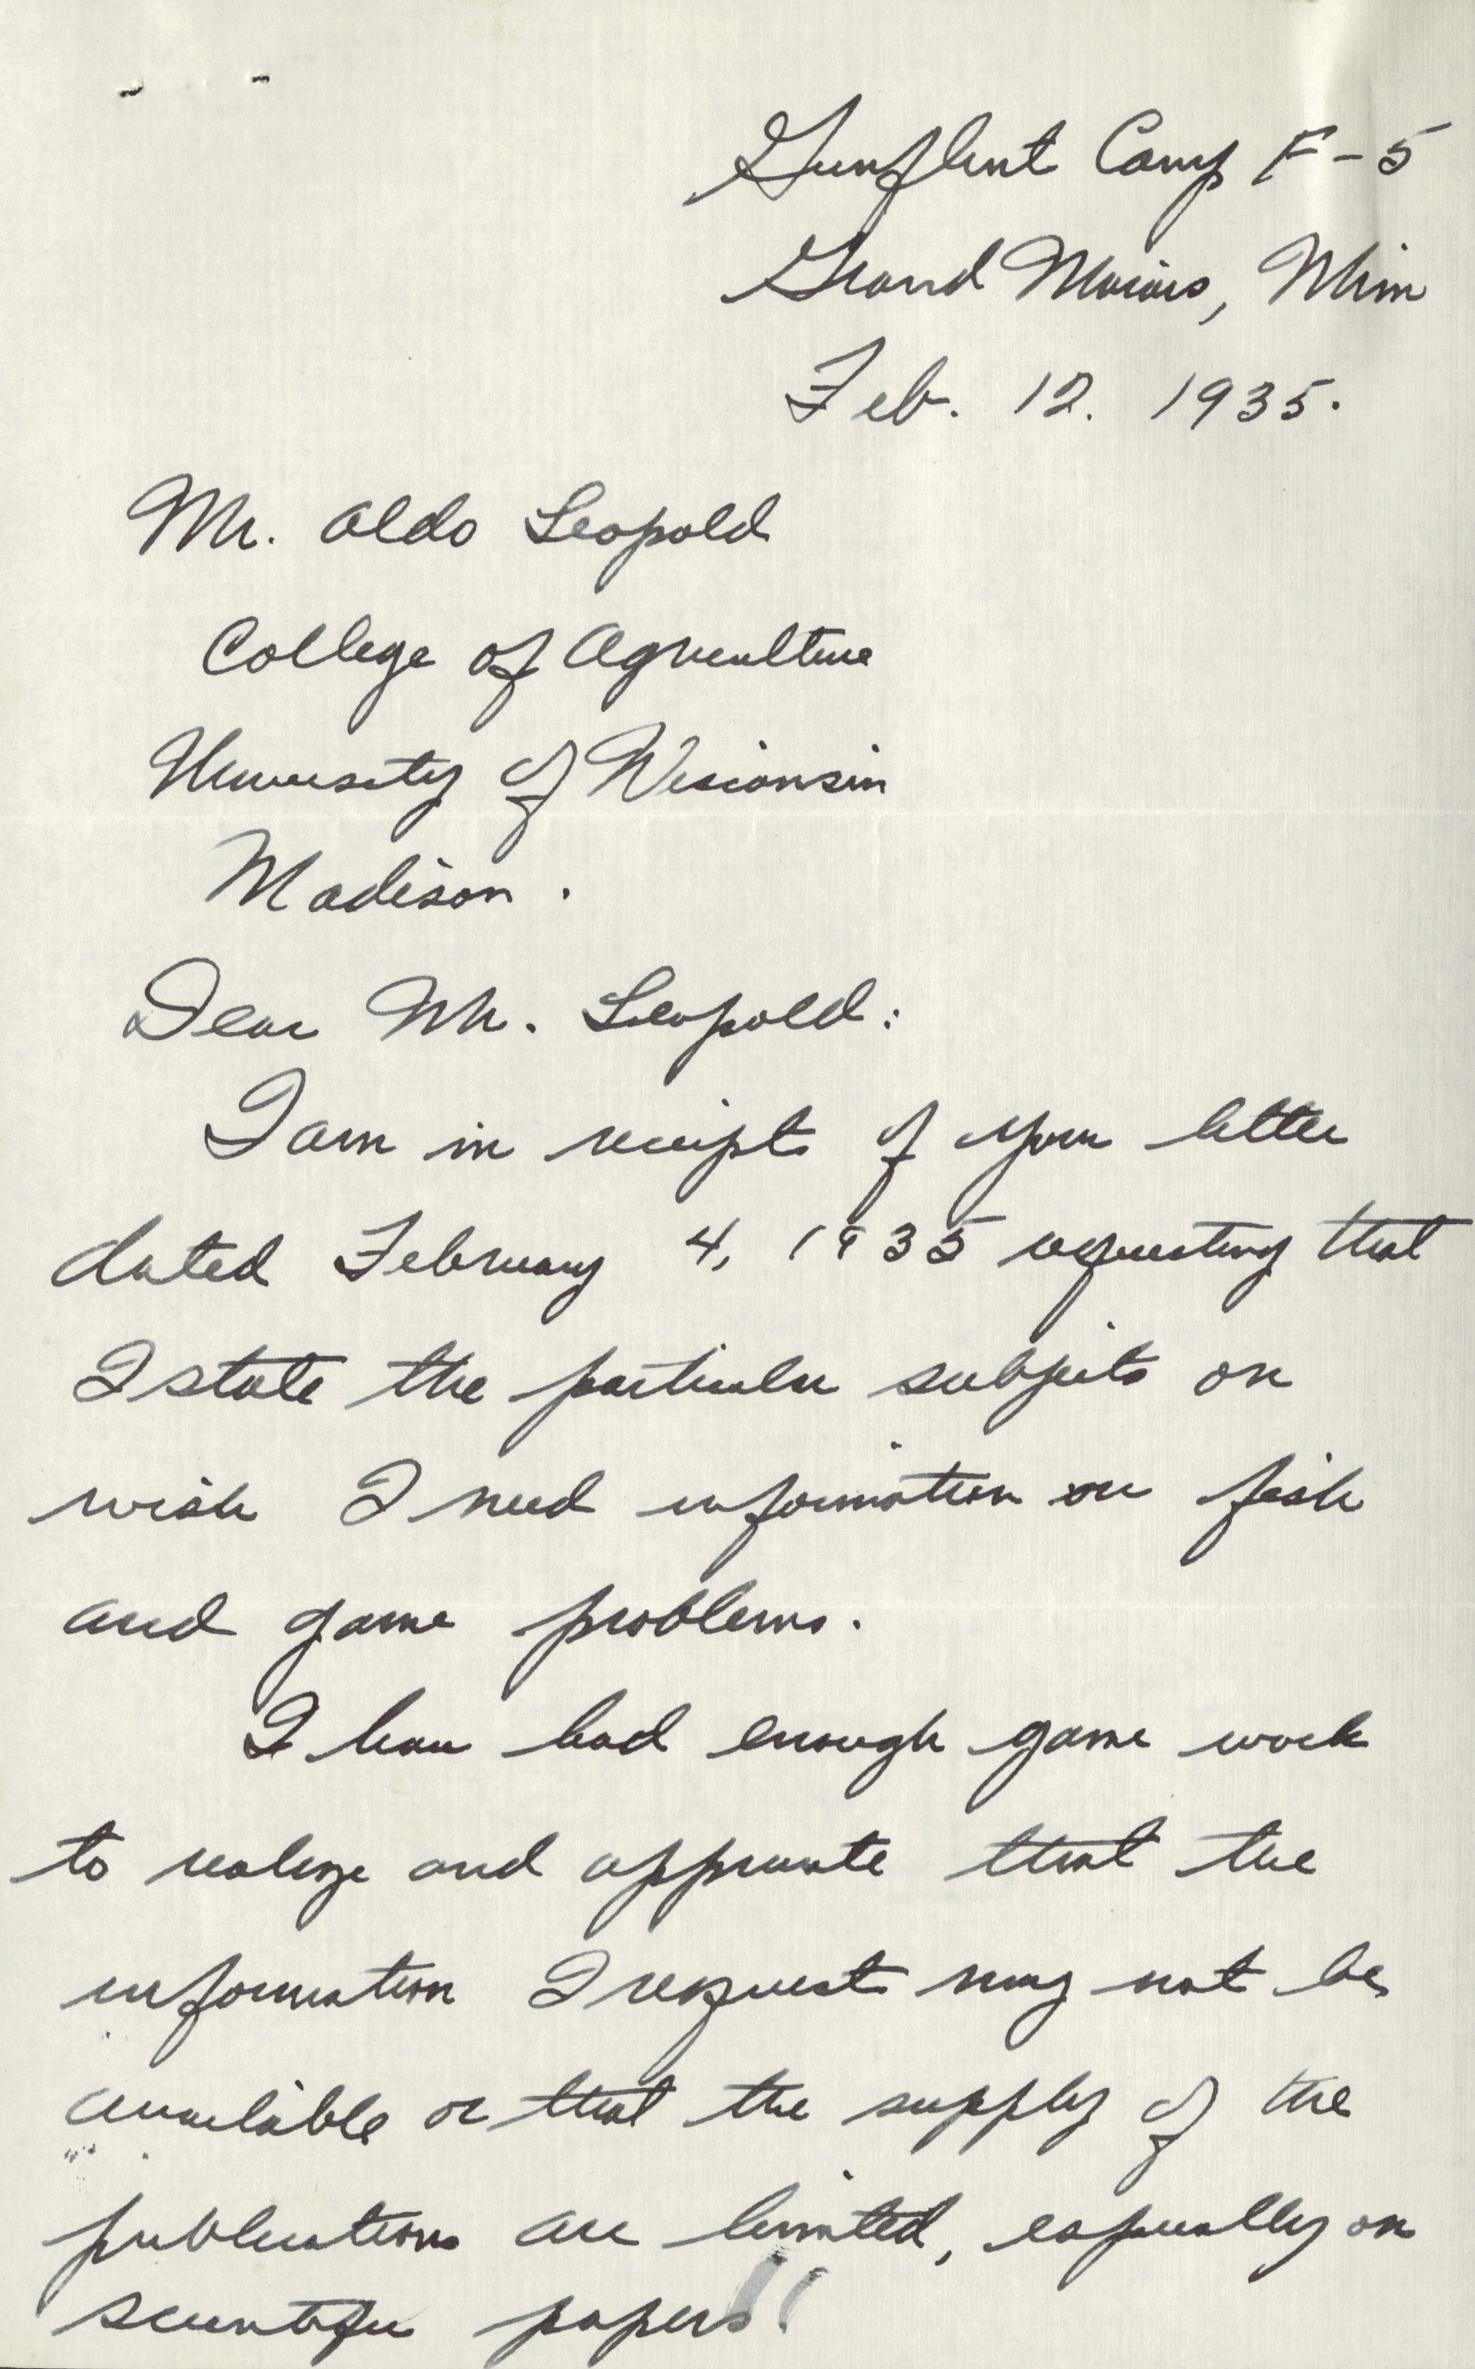 Gunflint Camp F-5
Grand Marais, Minn
Feb. 12. 1935.
Mr. Aldo Leopold
College of Agriculture
University of Wisconsin
Madison.
Dear Mr. Leopold:
I am in receipt of your letter
dated February 4, 1935 requesting that
I state the particular subjects on
wich I need information on fish
and game problems.
I have had enough game work
to realize and appreciate that the
information I request may not be
available or that the supply of the
publications are limited, especially on
scientific papers.